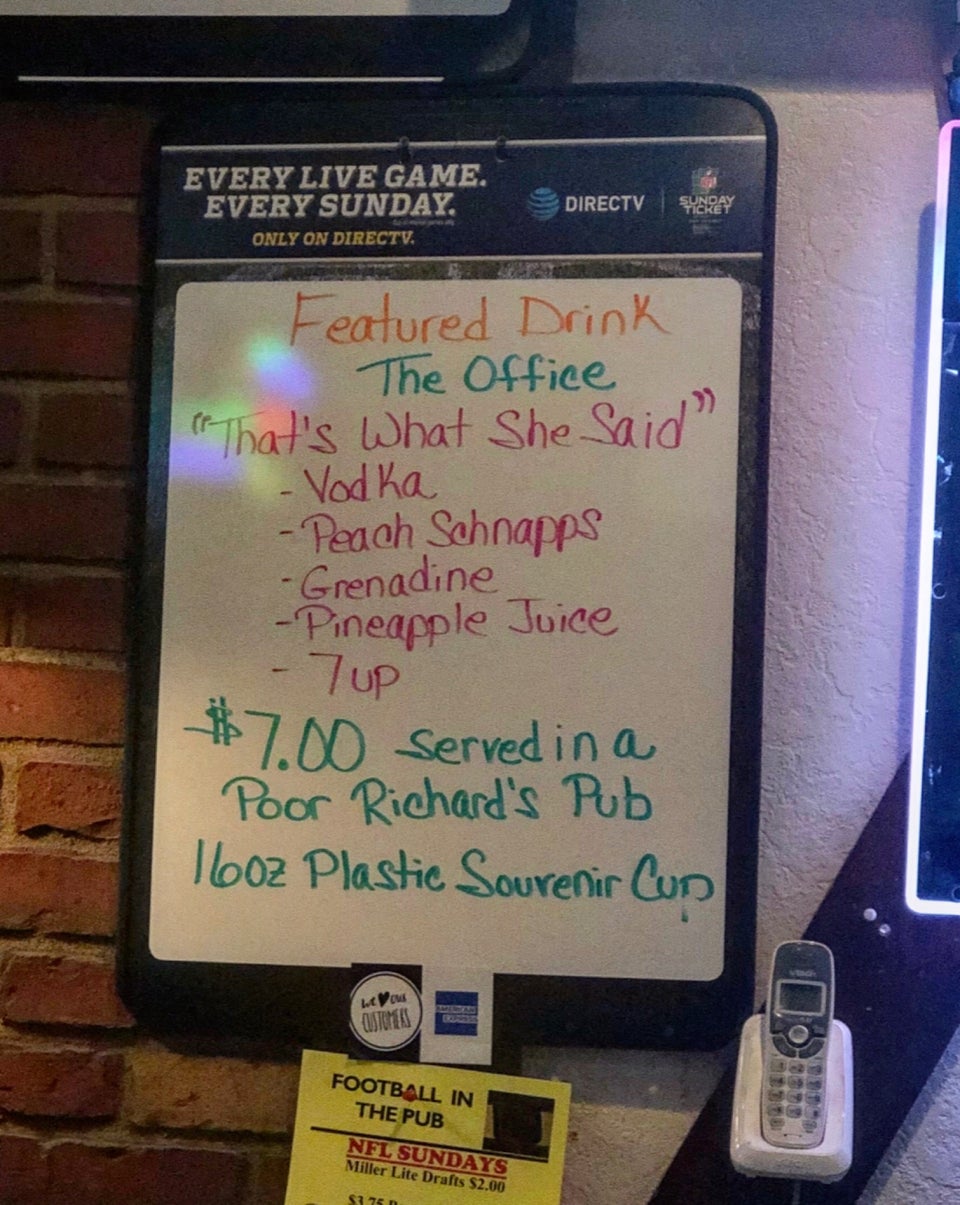 EVERY LIVE GAME.
EVERY SUNDAY.
ONLY ON DIRECTV.
DIRECTV
NFL
SUNDAY
TICKET
Featured Drink
The Office
"That's What She Said"
- Vodka
- Peach Schnapps
- Grenadine
- Pineapple Juice
- 7up
$7.00 served in a
Poor Richard's Pub
16oz Plastic Souvenir Cup
We ♥ our
CUSTOMERS
AMERICAN
EXPRESS
vtech
FOOTBALL IN
THE PUB
NFL SUNDAYS
Miller Lite Drafts $2.00
$3.75